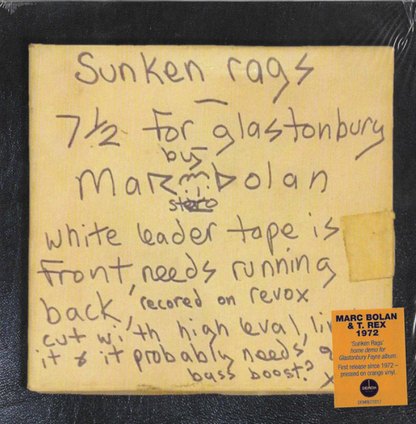 Sunken rags
7 1/2 for glastonbury
by
Marc bolan
stereo
white leader tape is
front, needs running
back, recored on revox
cut with high leval, li
it & it probably needs, a
bass boost? x
MARC BOLAN
& T. REX
1972
'Sunken Rags'
home demo for
Glastonbury Fayre album.
First release since 1972 –
pressed on orange vinyl.
DEMON